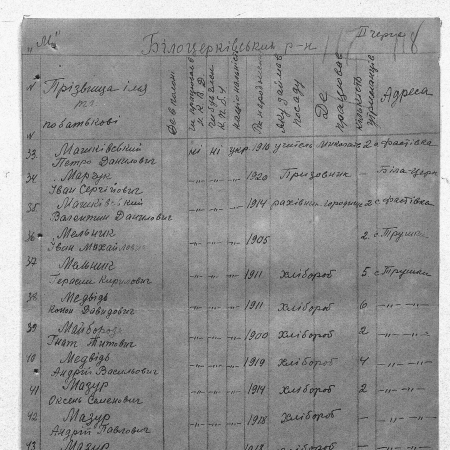 "М"
Білоцерківський р-н
II черга
№
Прізвища ім'я
та
по батькові
Рік народження
Яку займав
посаду
Де
працював
кількість
утриманців
Адреса
33. Машківський ні ні укр 1916 учитель 2 с Фастівка
Петро Данилович
34. Марчук 1920 Призовник – Біла-Церк
Іван Сергійович
35. Машківський 1914 рахівник 2 с Фастівка
Валентин Данилович
36 Мельник 1905 2 с Трушки
Іван Михайлович
37 Мельник 1911 хлібороб 5 с Трушки
Герасим Кирилович
38 Медвідь 1911 хлібороб 6 –"–"–
Конон Давидович
39 Майборода 1900 хлібороб 2 –"–"–
Гнат Титович
40 Медвідь 1919 хлібороб 4 –"–"–
Андрій Васильович
41 Мазур 1914 хлібороб 2 –"–"–
Оксень Семенович
42 Мазур 1918 хлібороб – –"–"–
Андрій Павлович
43 Мазур